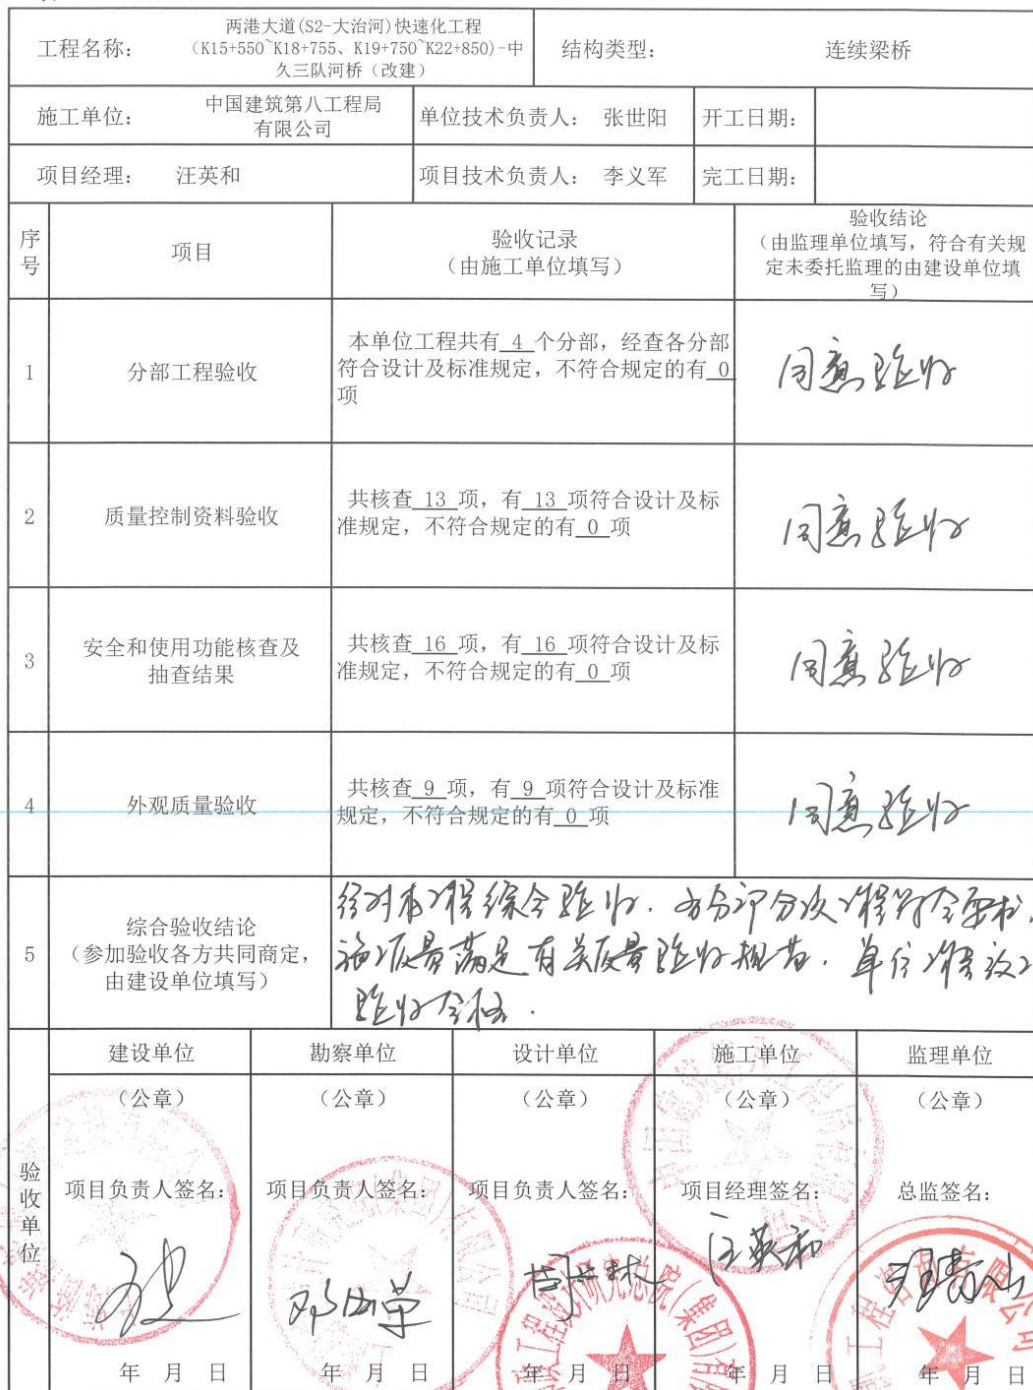 工程名称：
两港大道(S2-大治河)快速化工程
(K15+550~K18+755、K19+750~K22+850)-中
久三队河桥（改建）
结构类型：
连续梁桥
施工单位：
中国建筑第八工程局
有限公司
单位技术负责人： 张世阳
开工日期：
项目经理： 汪英和
项目技术负责人： 李义军
完工日期：
序
号
项目
验收记录
（由施工单位填写）
验收结论
（由监理单位填写，符合有关规
定未委托监理的由建设单位填
写）
1
分部工程验收
本单位工程共有 4 个分部，经查各分部
符合设计及标准规定，不符合规定的有 0
项
同意验收
2
质量控制资料验收
共核查 13 项，有 13 项符合设计及标
准规定，不符合规定的有 0 项
同意验收
3
安全和使用功能核查及
抽查结果
共核查 16 项，有 16 项符合设计及标
准规定，不符合规定的有 0 项
同意验收
4
外观质量验收
共核查 9 项，有 9 项符合设计及标准
规定，不符合规定的有 0 项
同意验收
5
综合验收结论
（参加验收各方共同商定，
由建设单位填写）
经对本工程综合验收．各分部分项工程符合要求，
施工质量满足有关质量验收规范．单位工程
验收合格．
验
收
单
位
建设单位
勘察单位
设计单位
施工单位
监理单位
（公章）
（公章）
（公章）
（公章）
（公章）
项目负责人签名：
项目负责人签名：
项目负责人签名：
项目经理签名：
总监签名：
汪英和
年 月 日
年 月 日
年 月 日
年 月 日
年 月 日